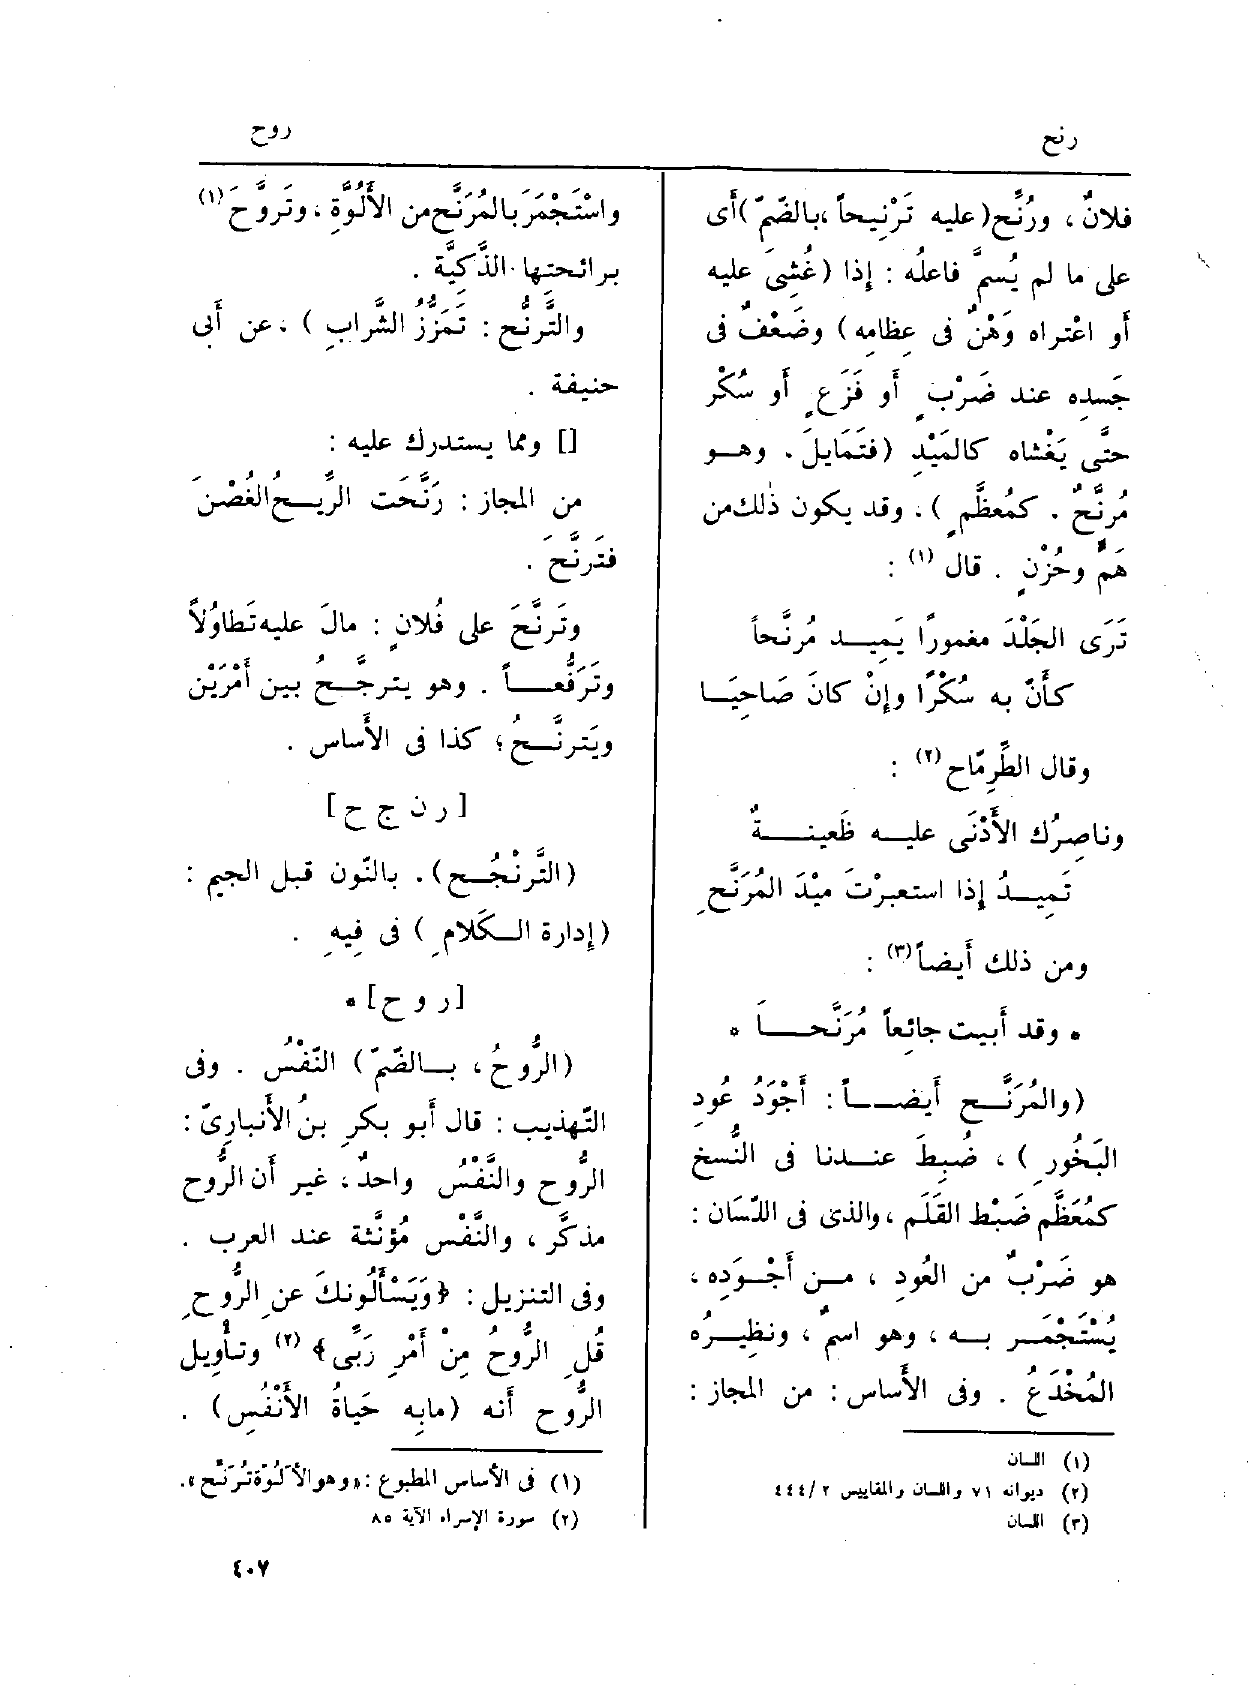 رنح
روح
فلانٌ ، ورُنِّح (عليه تَرْنِيحاً ، بالضّمّ) أَى
على ما لم يُسمَّ فاعلُه : إِذا (غُشِىَ عليه
أَو اعْتراه وَهْنٌ فى عِظامِه) وضَعْفٌ فى
جَسدِه عند ضَرْبٍ أَو فَزَعٍ أَو سُكْر
حتَّى يَغْشاه كالمَيْدِ (فتَمَايلَ . وهو
مُرنَّحٌ . كمُعظَّمٍ) ، وقد يكون ذٰلك من
هَمٍّ وحُزْنٍ . قال (١) :
تَرَى الجَلْدَ مغمورًا يَمِيد مُرنَّحاً
كأَنّ به سُكْرًا وإِنْ كانَ صَاحِيَا
وقال الطِّرِمّاح (٢) :
وناصِرُك الأَدْنَى عليه ظَعِينةٌ
تَمِيدُ إِذا استعبرْتَ ميْدَ المُرَنَّحِ
ومن ذلك أَيضاً (٣) :
* وقد أَبيت جائِعاً مُرَنَّحَا *
(والمُرَنَّح أَيضاً : أَجْوَدُ عُودِ
البَخُورِ) ، ضُبِطَ عندنا فى النُّسخ
كمُعَظَّم ضَبْط القَلَم ، والذى فى اللّسَان :
هو ضَرْبٌ من العُودِ ، من أَجْوَدِه ،
يُسْتَجْمَر به ، وهو اسمٌ ، ونظِيرُه
المُخْدَعُ . وفى الأَساس : من المجاز :
(١) اللسان
(٢) ديوانه ٧١ واللسان والمقاييس ٢/٤٤٤
(٣) اللسان
واسْتَجْمَرَ بالمُرَنَّح من الأَلُوَّةِ ، وتَروَّحَ (١)
برائحتِها الذَّكِيَّة .
والتَّرنُّح : تَمَزُّزُ الشَّرابِ) ، عن أَبى
حنيفة .
[] ومما يستدرك عليه :
من المجاز : رَنَّحَت الرِّيحُ الغُصْنَ
فتَرنَّحَ .
وتَرنَّحَ على فُلانٍ : مالَ عليه تَطاوُلاً
وتَرَفُّعاً . وهو يترجَّحُ بين أَمْرَيْن
ويَترنَّحُ ؛ كذا فى الأَساس .
[ ر ن ج ح ]
(التَّرنْجُح) . بالنّون قبل الجيم :
(إِدارة الكَلامِ) فى فِيهِ .
[ ر و ح ] *
(الرُّوحُ ، بالضّمّ) النّفْسُ . وفى
التّهذيب : قال أَبو بكرِ بنُ الأَنبارِىّ :
الرُّوح والنَّفْسُ واحدٌ ، غير أَن الرُّوح
مذكَّر ، والنَّفْس مُؤنّثة عند العرب .
وفى التنزيل : ﴿وَيَسْأَلُونكَ عن الرُّوحِ
قُلِ الرُّوحُ مِنْ أَمْرِ رَبِّى﴾ (٢) وتأْوِيل
الرُّوح أَنه (مابِه حَيَاةُ الأَنْفُسِ) .
(١) فى الأساس المطبوع : «وهو الأَلُوّة تُرنَّح» .
(٢) سورة الإسراء الآية ٨٥
٤٠٧